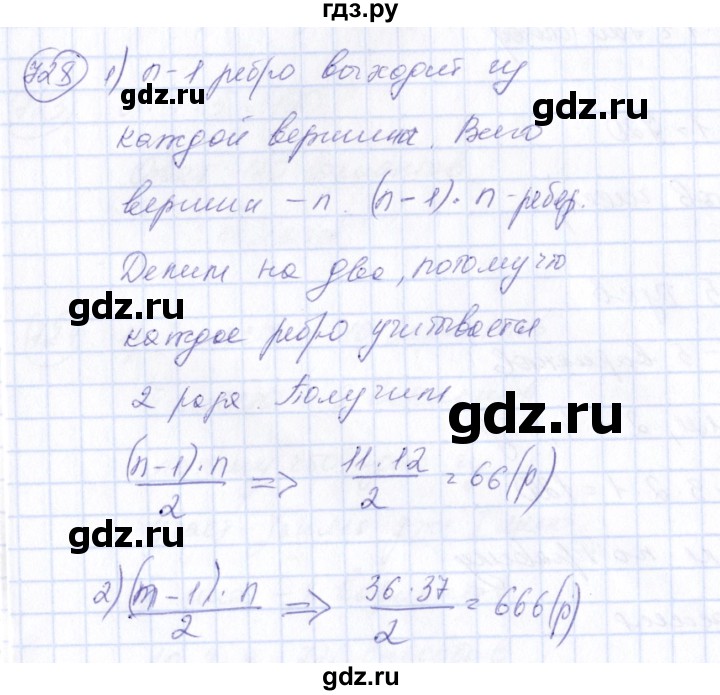 гдз.ру
728 1) n-1 ребро выходит из
каждой вершины. Всего
вершин - n. (n-1)·n - ребер.
Делим на два, потому что
gdz.ru
каждое ребро учитывается
2 раза. Получим
gdz.ru
(n-1)·n / 2 => 11·12 / 2 = 66(р)
gdz.ru
2) (n-1)·n / 2 => 36·37 / 2 = 666(р)
gdz.ru